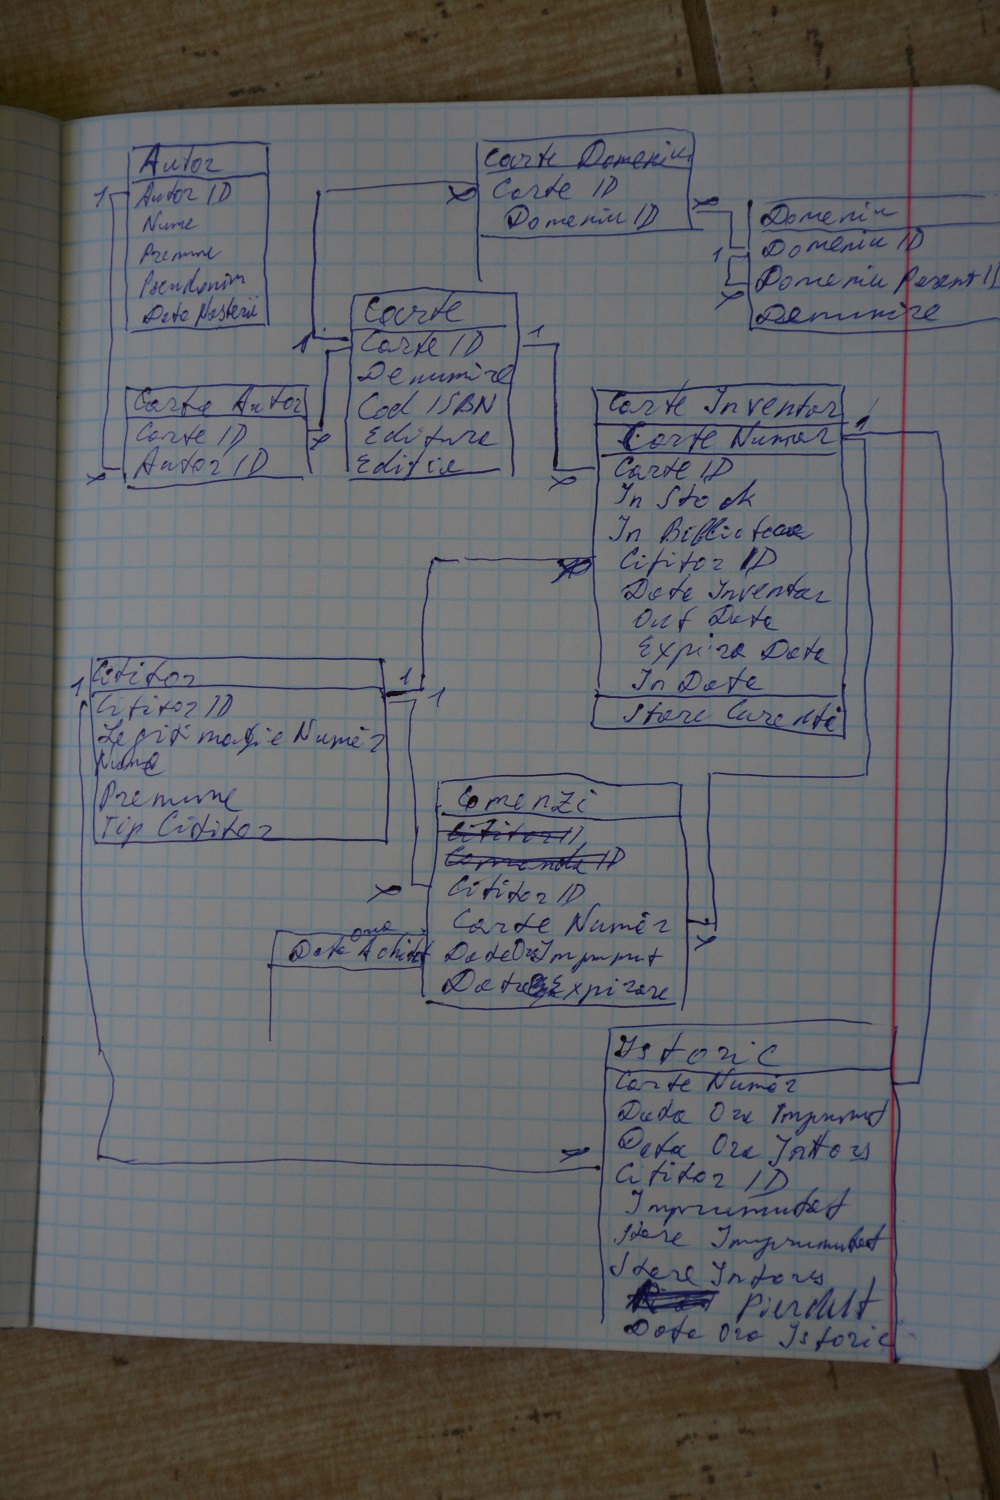 Autor
1 Autor ID
Nume
Prenume
Pseudonim
Data Nasterii
Carte Domeniu
∞ Carte ID
Domeniu ID ∞
Domeniu
1 Domeniu ID
∞ Domeniu Parent ID
Denumire
Carte
1 Carte ID 1
Denumire
Cod ISBN
Editura
Editie
Carte Autor
Carte ID ∞
∞ Autor ID
Carte Inventar
Carte Numar 1
∞ Carte ID
In Stock
In Biblioteca
∞ Cititor ID
Data Inventar
Out Data
Expira Data
In Data
Stare Curenta
Cititor 1
1 Cititor ID 1
Legitimatie Numar
Nume
Prenume
Tip Cititor
Comenzi
Cititor ID
Comanda ID
∞ Cititor ID
Carte Numar ∞
Data Ora Imprumut
Data Expirare
Data Ora
Istoric
Carte Numar
Data Ora Imprumut
Data Ora Intors
∞ Cititor ID
Imprumutat
Stare Imprumutat
Stare Intors
Pierdut
Data Ora Istoric